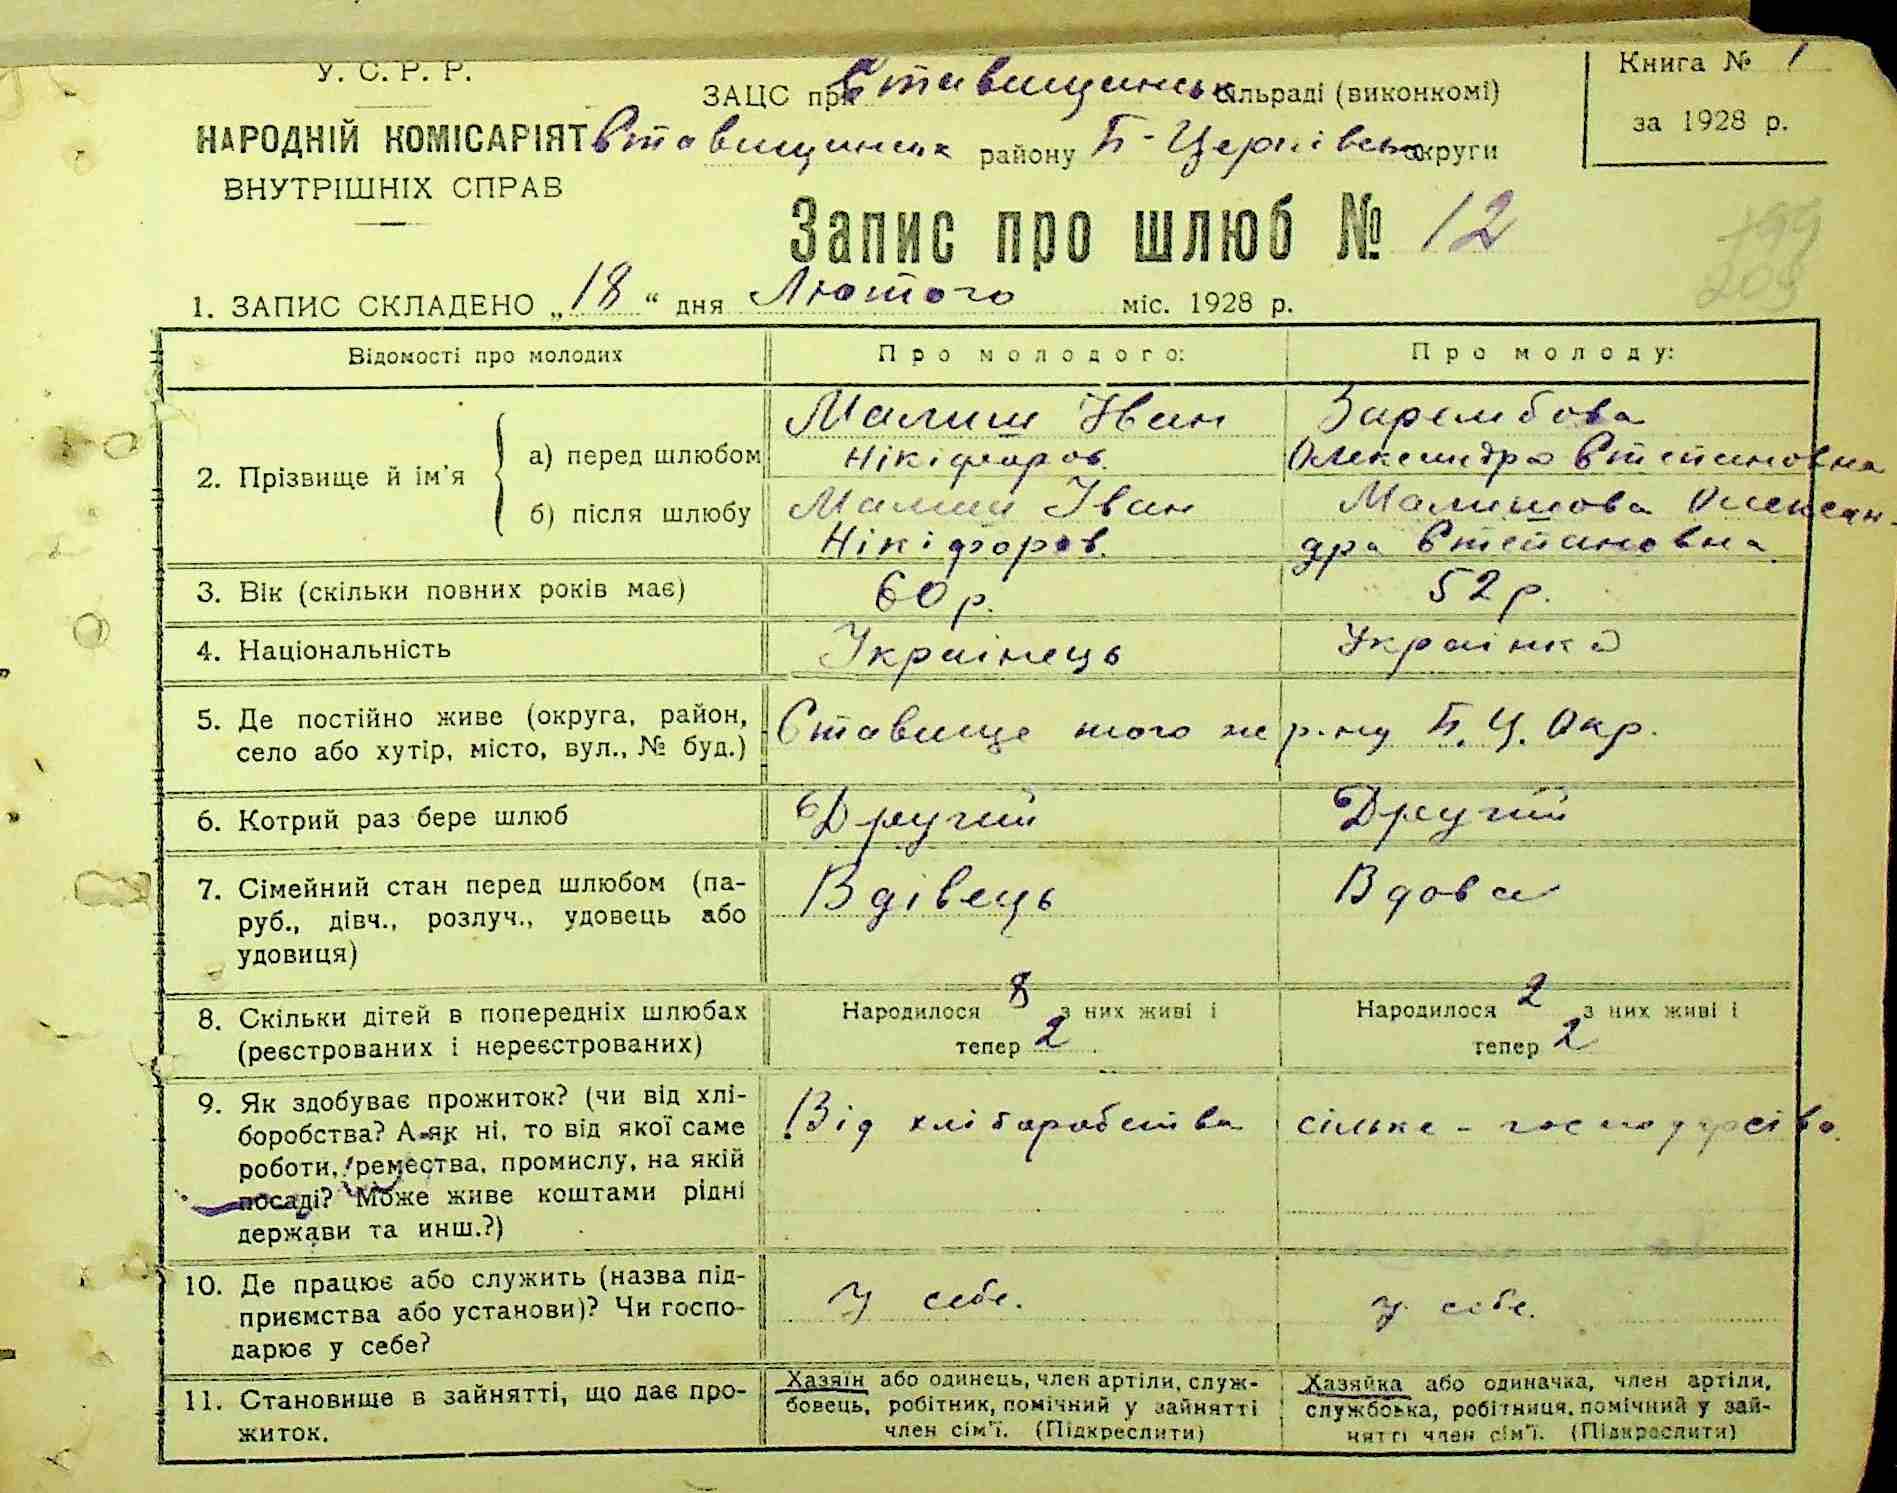 У. С. Р. Р.
НАРОДНІЙ КОМІСАРІЯТ
ВНУТРІШНІХ СПРАВ
ЗАЦС при Ставищинськ сільраді (виконкомі)
Ставищинськ району Б-Церківськ округи
Книга № 1
за 1928 р.
Запис про шлюб № 12
199
203
1. ЗАПИС СКЛАДЕНО „18“ дня Лютого міс. 1928 р.
Відомості про молодих
Про молодого:
Про молоду:
2. Прізвище й ім'я
а) перед шлюбом
Малиш Іван
Нікіфоров.
Зарембова
Олександра Степановна
б) після шлюбу
Малиш Іван
Нікіфоров.
Малишова Олексан-
дра Степановна
3. Вік (скільки повних років має)
60 р.
52 р.
4. Національність
Украінець
Украінка
5. Де постійно живе (округа, район,
село або хутір, місто, вул., № буд.)
Ставище того же р-ну Б. Ц. Окр.
6. Котрий раз бере шлюб
Другий
Другий
7. Сімейний стан перед шлюбом (па-
руб., дівч., розлуч., удовець або
удовиця)
Вдівець
Вдова
8. Скільки дітей в попередніх шлюбах
(реєстрованих і нереєстрованих)
Народилося 8 з них живі і
тепер 2
Народилося 2 з них живі і
тепер 2
9. Як здобуває прожиток? (чи від хлі-
боробства? А як ні, то від якої саме
роботи, ремества, промислу, на якій
посаді? Може живе коштами рідні
держави та инш.?)
Від хліборобства
сільске-господарство.
10. Де працює або служить (назва під-
приємства або установи)? Чи госпо-
дарює у себе?
У себе.
У себе.
11. Становище в зайнятті, що дає про-
житок.
Хазяїн або одинець, член артіли, служ-
бовець, робітник, помічний у зайнятті
член сім'ї. (Підкреслити)
Хазяйка або одиначка, член артіли,
службовка, робітниця, помічний у зай-
нятті член сім'ї. (Підкреслити)